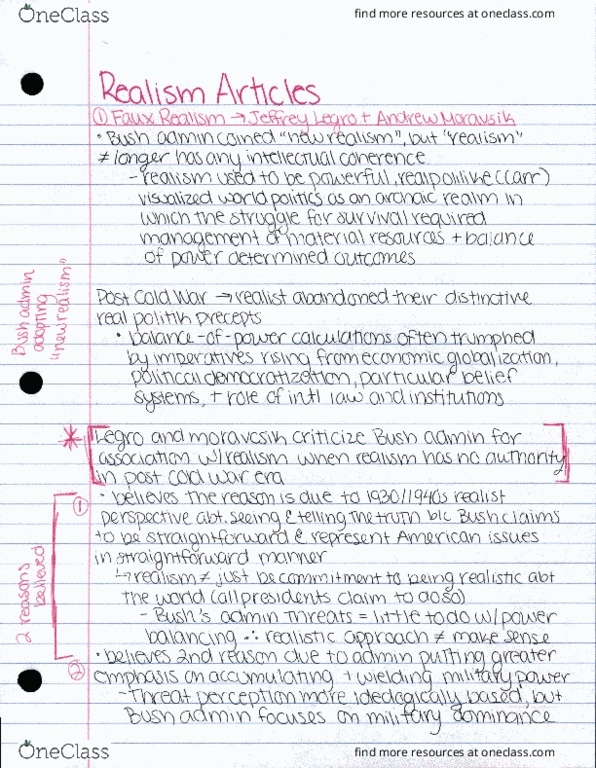 OneClass
find more resources at oneclass.com
Realism Articles
① Faux Realism → Jeffrey Legro + Andrew Moravsik
• Bush admin coined "new realism", but "realism"
≠ longer has any intellectual coherence
- realism used to be powerful, realpolitike (Carr)
visualized world politics as an archaic realm in
which the struggle for survival required
management of material resources + balance
of power determined outcomes
Bush admin
adopting
"new realism"
Post Cold War → realist abandoned their distinctive
real politik precepts
• balance-of-power calculations often trumphed
by imperatives rising from economic globalization,
political democratization, particular belief
systems, + role of intl law and institutions
* [Legro and moravcsik criticize Bush admin for
association w/ realism when realism has no authority
in post cold war era]
2 reasons
believed
① • believes the reason is due to 1930/1940s realist
perspective abt. seeing & telling the truth b/c Bush claims
to be straightforward & represent American issues
in straightforward manner
↳ realism ≠ just be commitment to being realistic abt
the world (all presidents claim to do so)
- Bush's admin threats = little to do w/ power
balancing ∴ realistic approach ≠ make sense
② • believes 2nd reason due to admin putting greater
emphasis on accumulating + wielding military power
- Threat perception more ideologically based, but
Bush admin focuses on military dominance
OneClass
find more resources at oneclass.com